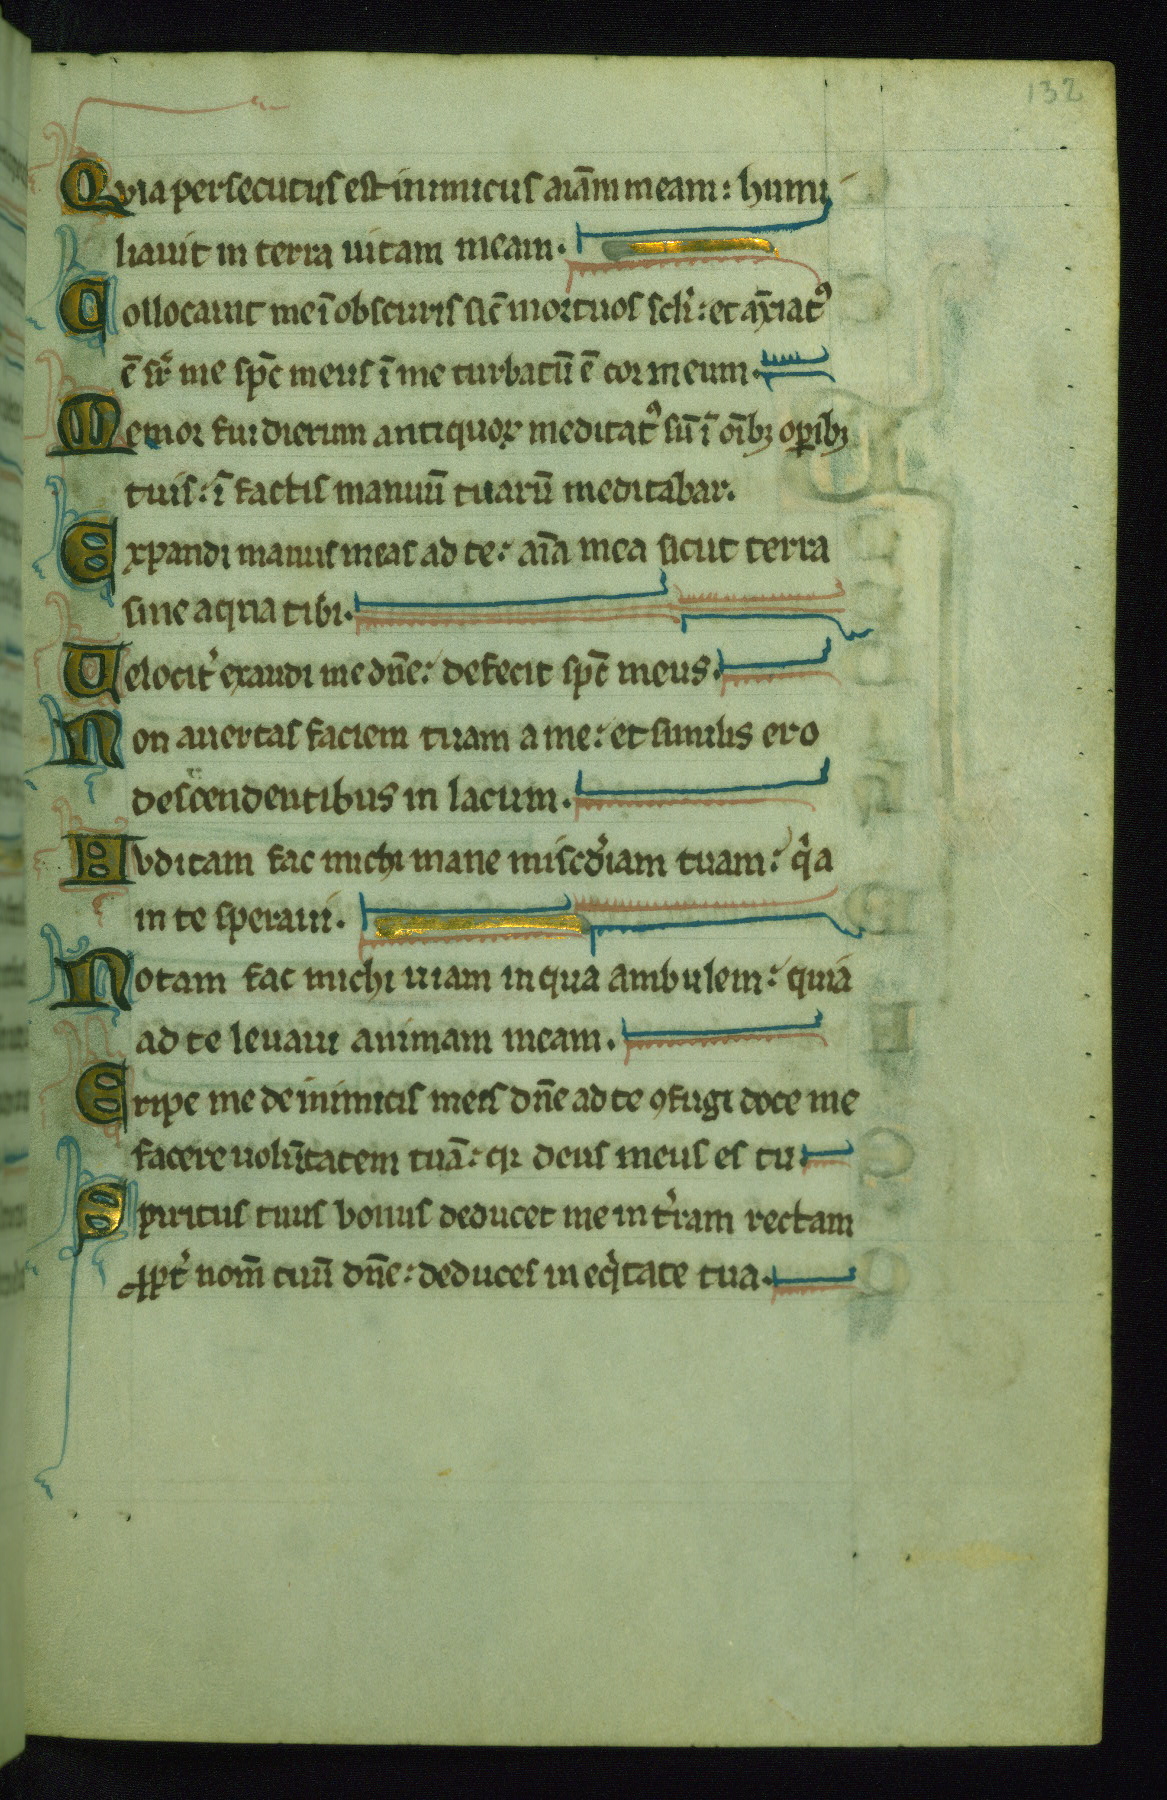 132
Qvia persecutus est inimicus aīam meam: humi
liauit in terra uitam meam.
Collocauit me ī obscuris sic̄ mortuos scl̄i: et anxiatꝰ
ē sr̄ me spc̄ meus ī me turbatū ē cor meum.
Memor fui dierum antiquoꝝ meditatꝰ sū ī oīb; opib;
tuis: ī factis manuū tuarū meditabar.
Expandi manus meas ad te: aīa mea sicut terra
sine aqua tibi.
Uelocit̾ exaudi me dn̄e: defecit spc̄ meus.
Non auertas faciem tuam a me: et similis ero
descendentibus in lacum.
Avditam fac michi mane misc̾diam tuam: qͥa
in te speraui.
Notam fac michi uiam in qua ambulem: quia
ad te leuaui animam meam.
Eripe me de inimicis meis dn̄e ad te ꝯfugi doce me
facere uolūtatem tuā: qꝛ deus meus es tu.
Spiritus tuus bonus deducet me in t̾ram rectam
ꝓpt̾ nom̄ tuū dn̄e: deduces in eqͥtate tua.